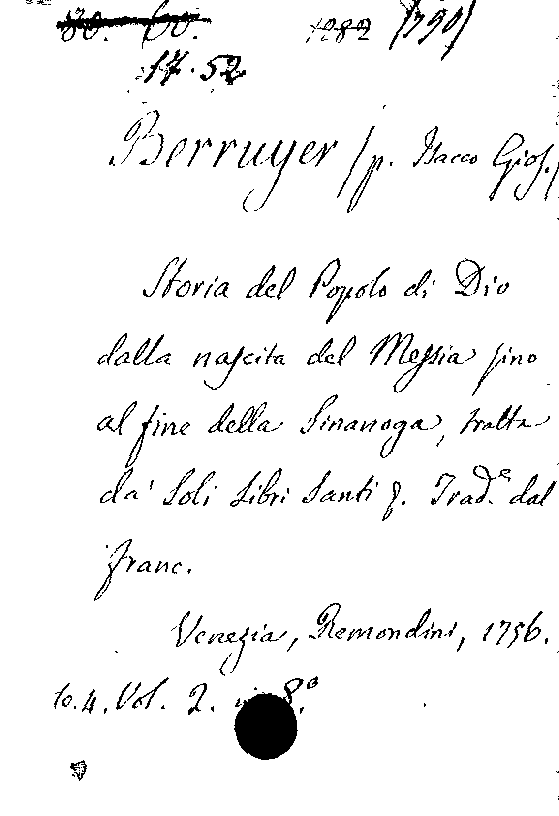 80. 60. 1282 (790)
17.52
Berruyer (p. Isacco Gios.)
Storia del Popolo di Dio
dalla nascita del Messia fino
al fine della Sinanoga, tratta
da' Soli Libri Santi &. Trad.e dal
franc.
Venezia, Remondini, 1756.
to.4. Vol. 2. in 8.o